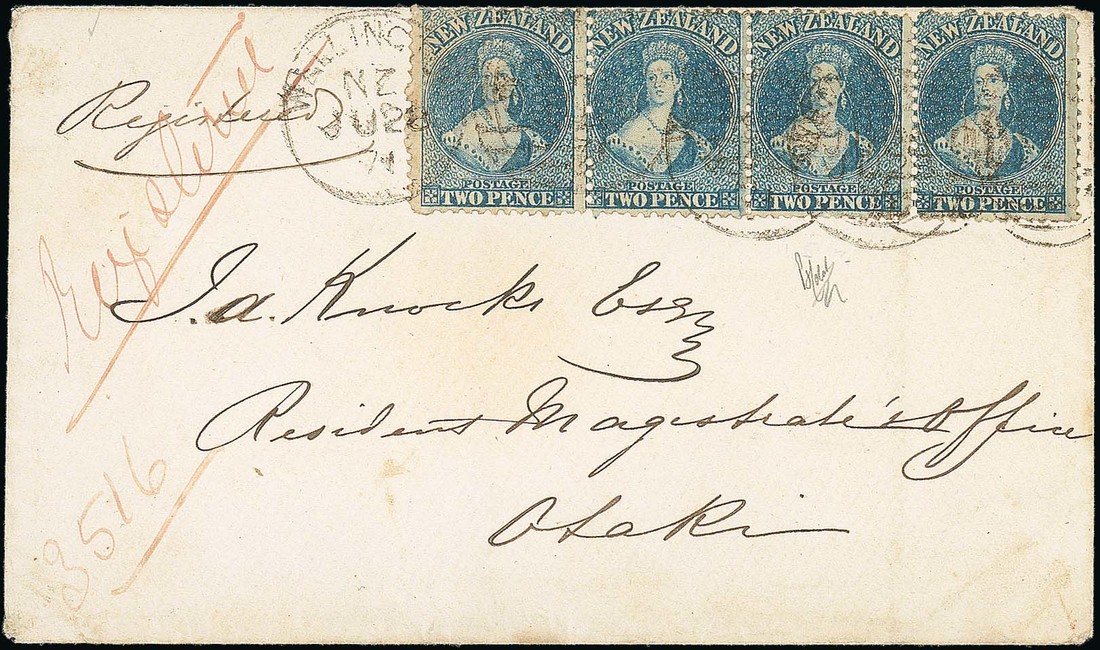 NEW ZEALAND NEW ZEALAND NEW ZEALAND NEW ZEALAND
POSTAGE POSTAGE POSTAGE POSTAGE
TWO PENCE TWO PENCE TWO PENCE TWO PENCE
WELLING
NZ
71
Registered
Registered
J. A. Knocks Esq
Resident Magistrate's Office
Otaki
3516